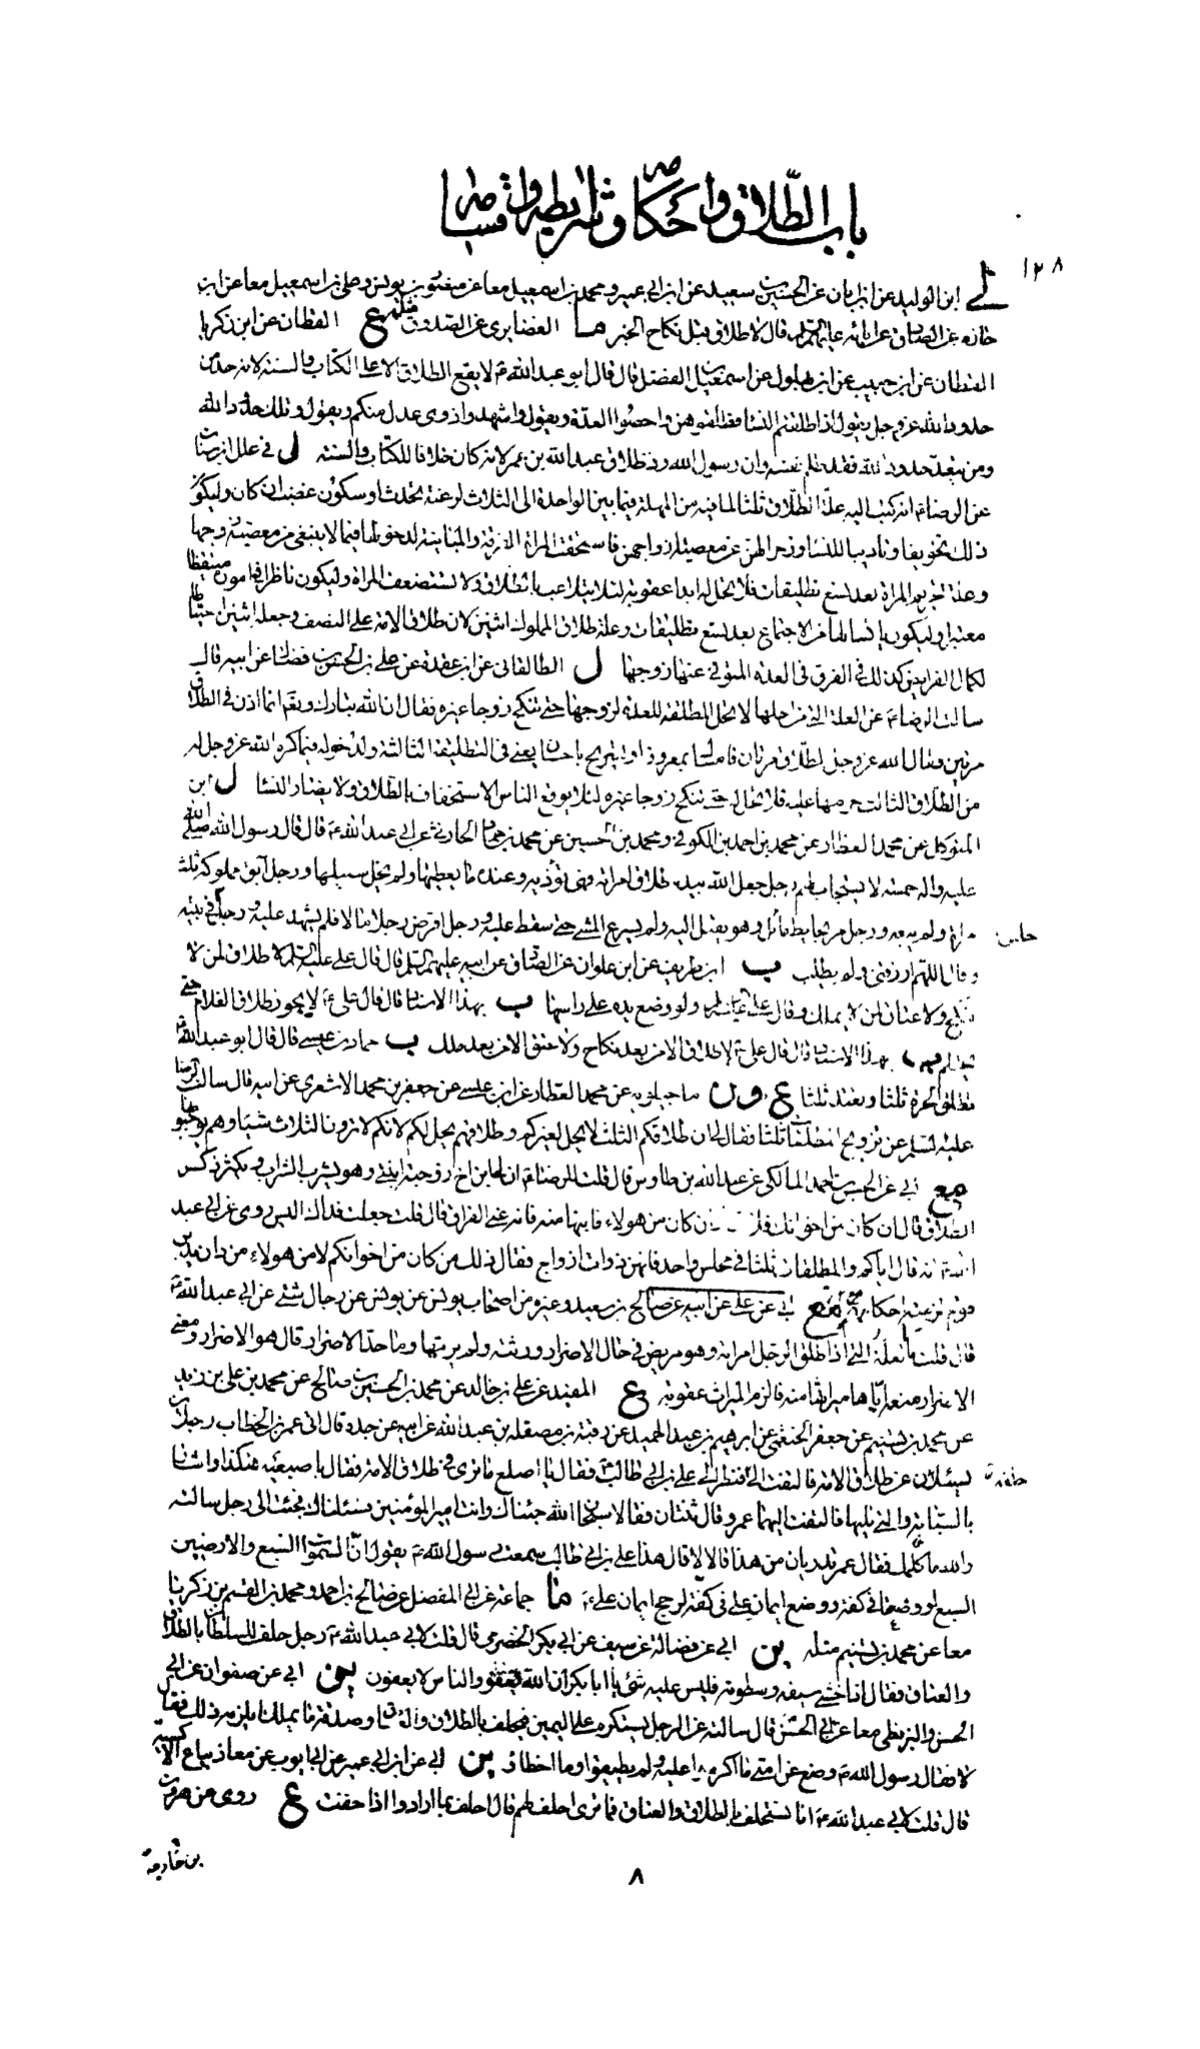 باب الطلاق واحكامه وشرايطه واقسامه
١٢٨
لى ابن الوليد عن ابن ابان عن الحسين بن سعيد عن ابن ابي عمير و محمد بن اسمعيل معا عن منصور بن يونس و على بن اسمعيل معا عن ابن
حازم عن الصادق عن ابائه عليهم السلام قال لا طلاق قبل نكاح الخبر ما الغضايرى عن الصدوق مثله ع القطان عن ابن زكريا
القطان عن ابن حبيب عن ابن بهلول عن اسمعيل بن الفضل قال قال ابو عبد الله ع لا يقع الطلاق الا على الكتاب والسنة لانه حد من
حدود الله عز وجل يقول اذا طلقتم النسا فطلقوهن واحصوا العدة ويقول واشهدوا ذوى عدل منكم ويقول وتلك حدود الله
ومن يتعد حدود الله فقد ظلم نفسه وان رسول الله رد طلاق عبد الله بن عمر لانه كان خلافا للكتاب والسنة ل فى علل ابن سنان
عن الرضا ع انه كتب اليه علة الطلاق ثلثا لما فيه من المهلة فيما بين الواحدة الى الثلاث لرغبة تحدث او سكون غضب ان كان وليكون
ذلك تخويفا وتاديبا للنسا وزجرا لهن عن معصية ازواجهن فاستحقت المراة الفرقة والمباينة لدخولها فيما لا ينبغى من معصية زوجها
وعلة تحريم المراة بعد تسع تطليقات فلا تحل له ابدا عقوبة لئلا يتلاعب بالطلاق ولا يستضعف المراة وليكون ناظرا فى اموره متيقظا
معتبرا وليكون يائسا لهما من الاجتماع بعد تسع تطليقات وعلة طلاق المملوك اثنين لان طلاق الامة على النصف وجعله اثنين احتياطا
لكمال الفرايض كذلك فى الفرق فى العدة المتوفى عنها زوجها ل الطالقانى عن ابن عقدة عن على بن الحسن بن فضال عن ابيه قال
سالت الرضا ع عن العلة التى من اجلها لا تحل المطلقة للعدة لزوجها حتى تنكح زوجا غيره فقال ان الله تبارك وتعالى انما اذن فى الطلاق
مرتين فقال الله عز وجل الطلاق مرتان فامساك بمعروف او تسريح باحسان يعنى فى التطليقة الثالثة ولدخوله فيما كره الله عز وجل له
من الطلاق الثالث حرمها عليه فلا تحل له حتى تنكح زوجا غيره لئلا يوقع الناس الاستخفاف بالطلاق ولا يضار النسا ل ابن
المتوكل عن محمد العطار عن محمد بن احمد بن الكوفى و محمد بن الحسين عن محمد بن حماد الحارثى عن ابي عبد الله ع قال قال رسول الله صلى الله
عليه واله خمسة لا يستجاب لهم رجل جعل الله بيده طلاق امراته فهى تؤذيه وعنده ما يعطيها ولم يخل سبيلها ورجل ابق مملوكه ثلث
مرات ولم يبعه ورجل مر بحايط مائل وهو يقبل اليه ولم يسرع المشى حتى سقط عليه ورجل اقرض رجلا مالا فلم يشهد عليه ورجل جلس فى بيته
وقال اللهم ارزقنى ولم يطلب ب ابن طريف عن ابن علوان عن الصادق عن ابيه عليهم السلم قال قال على عليه السلم لا طلاق لمن لا
ينكح ولا عتاق لمن لا يملك وقال على عليه السلم ولو وضع يده على راسها ب بهذا الاسناد قال قال على ع لا يجوز طلاق الغلام حتى
يحتلم ب بهذا الاسناد قال قال على ع لا طلاق الا من بعد نكاح ولا عتق الا من بعد ملك ب حماد بن عيسى قال قال ابو عبد الله ع
تطلق الحرة ثلثا وتعتد ثلثا ع ون ماجيلويه عن محمد العطار عن ابن عيسى عن جعفر بن محمد الاشعرى عن ابيه قال سالت الرضا
عليه السلم عن تزويج المطلقات ثلثا فقال لى ان طلاقكم الثلث لا يحل لغيركم وطلاقهم يحل لكم لانكم لا ترون الثلاث شيئا وهم يوجبونها
مع ابي عن الحسن بن احمد المالكى عن عبد الله بن طاوس قال قلت للرضا ع ان لى ابن اخ زوجته ابنتى وهو يشرب الشراب ويكثر ذكر
الطلاق قال ان كان من اخوانك فلا وان كان من هولاء فابنها منه فانه عنى الفراق قال قلت جعلت فداك اليس روى عن ابي عبد
الله ع انه قال اياكم والمطلقات ثلثا فى مجلس واحد فانهن ذوات ازواج فقال ذلك من كان من اخوانكم لا من هولاء من دان بدين
قوم لزمته احكامهم مع ابي عن على عن ابيه عن صالح بن سعيد وغيره من اصحاب يونس عن يونس عن رجال شتى عن ابي عبد الله ع
قال قلت ما العلة التى اذا طلق الرجل امراته وهو مريض فى حال الاضرار ورثته ولم يرثها وما حد الاضرار قال هو الاضرار ومعنى
الاضرار منعه اياها ميراثها منه فالزم الميراث عقوبة ع المفيد عن على بن خالد عن محمد بن الحسين بن صالح عن محمد بن على بن زيد
عن محمد بن تسنيم عن جعفر الخثعمى عن ابرهيم بن عبد الحميد عن رقبة بن مصقلة بن عبد الله عن ابيه عن جده قال اتى عمر بن الخطاب رجلان
يسئلان عن طلاق الامة فالتفت الى خلفه فنظر الى على بن ابي طالب ع فقال يا اصلع ما ترى فى طلاق الامة فقال باصبعيه هكذا واشار
بالسبابة والتى تليها فالتفت اليهما عمر وقال ثنتان فقالا سبحان الله جئناك وانت امير المؤمنين فسئلناك فجئت الى رجل سالته
والله ما كلمك فقال عمر تدريان من هذا قالا لا قال هذا على بن ابي طالب سمعت رسول الله ص يقول ان السموات السبع والارضين
السبع لو وضعتا فى كفة ووضع ايمان على فى كفة لرجح ايمان على ع ما جماعة عن ابي المفضل عن صالح بن احمد و محمد بن القسم بن زكريا
معا عن محمد بن تسنيم مثله ين ابي عن فضالة عن سيف عن ابي بكر الحضرمى قال قلت لابي عبد الله ع رجل حلف للسلطان بالطلاق
والعتاق فقال اذا خشى سيفه وسطوته فليس عليه شئ يا ابا بكر ان الله يعفو والناس لا يعفون ين ابي عن صفوان عن ابي
الحسن والبزنطى معا عن ابي الحسن قال سالته عن الرجل يستكره على اليمين فيحلف بالطلاق والعتاق وصدقة ما يملك ايلزمه ذلك فقال
لا فقال رسول الله ص وضع عن امتى ما اكرهوا عليه ولم يطيقوا وما اخطاؤا ين ابي عن ابن ابي عمير عن ابي ايوب عن معاذ بياع الاكسية
قال قلت لابي عبد الله ع انا نستحلف بالطلاق والعتاق فما ترى احلف لهم قال احلف بما ارادوا اذا خفت ع روى عن هرون
بن خارجة
٨